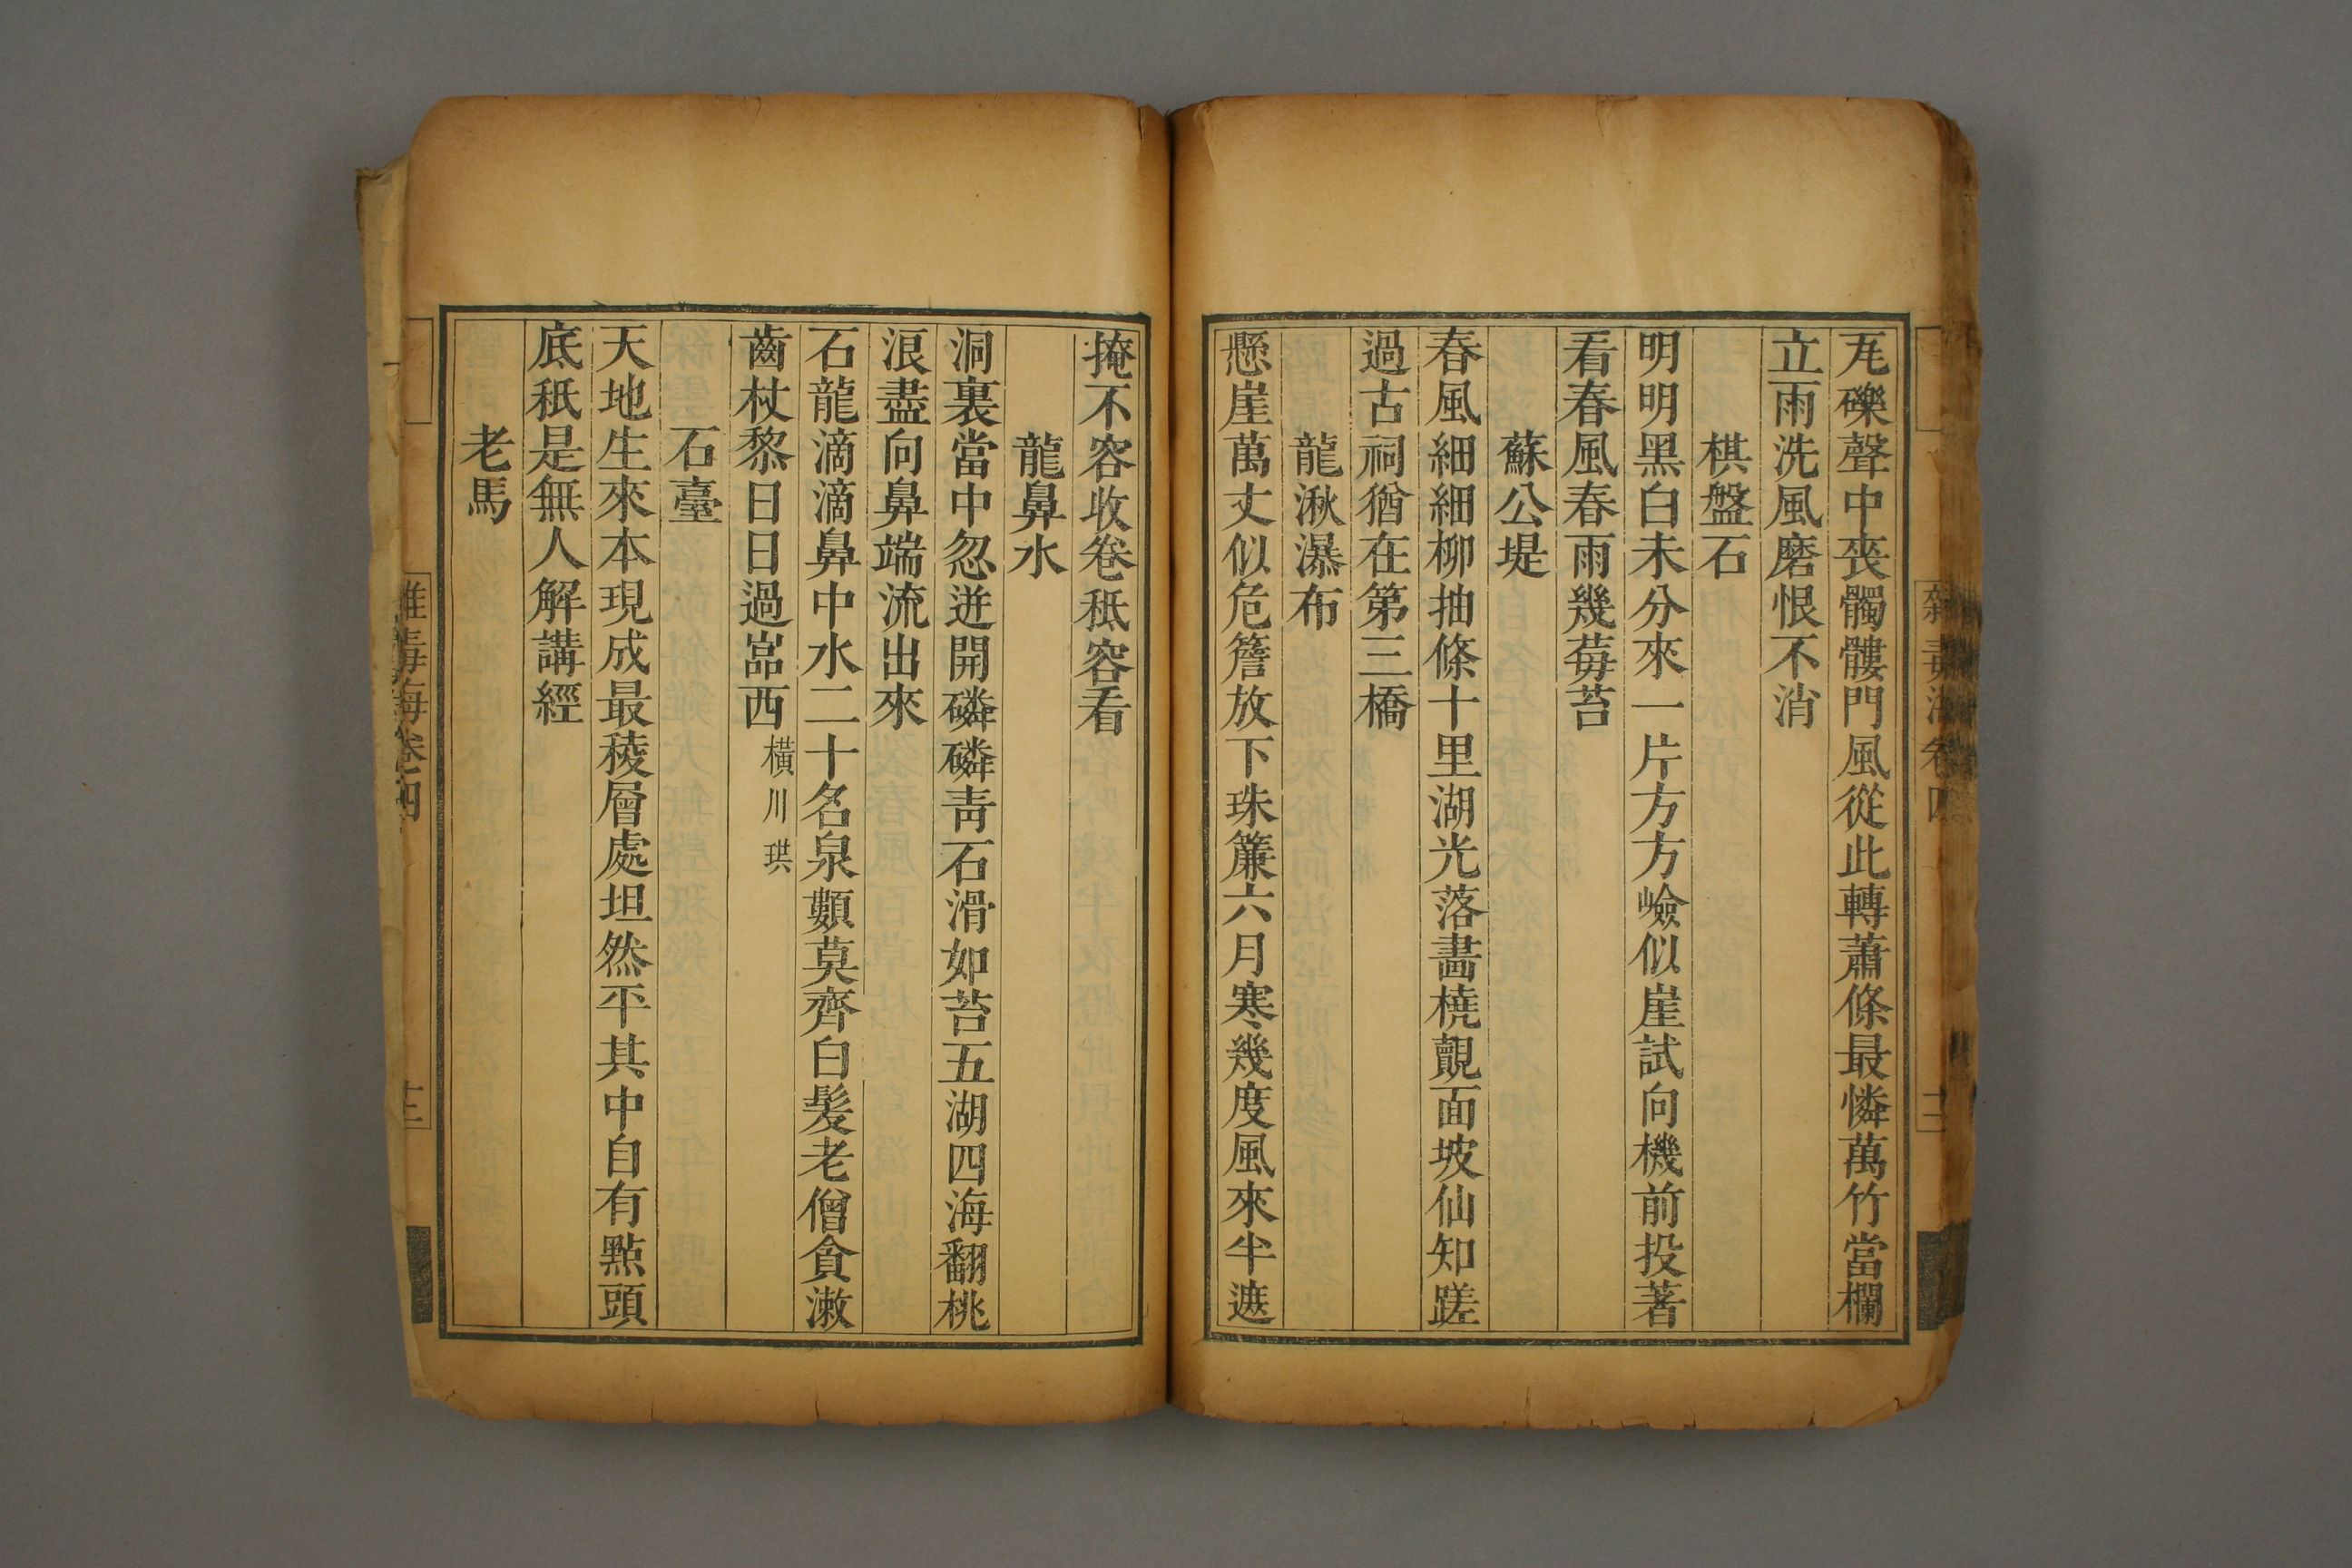 瓦礫聲中喪髑髏門風從此轉蕭條最憐萬竹當欄
立雨洗風磨恨不消
棋盤石
明明黑白未分來一片方方嶮似崖試向機前投著
看春風春雨幾莓苔
蘇公堤
春風細細柳抽條十里湖光落畵橈覿面坡仙知蹉
過古祠猶在第三橋
龍湫瀑布
懸崖萬丈似危簷放下珠簾六月寒幾度風來半遮
掩不容收卷秪容看
龍鼻水
洞裏當中忽迸開磷磷靑石滑如苔五湖四海翻桃
浪盡向鼻端流出來
石龍滴滴鼻中水二十名泉顭莫齊白髮老僧貪漱
齒杖黎日日過嵓西 橫川珙
石臺
天地生來本現成最稜層處坦然平其中自有點頭
底秖是無人解講經
老馬
雜毒海卷四
十二
雜毒海卷四
十三